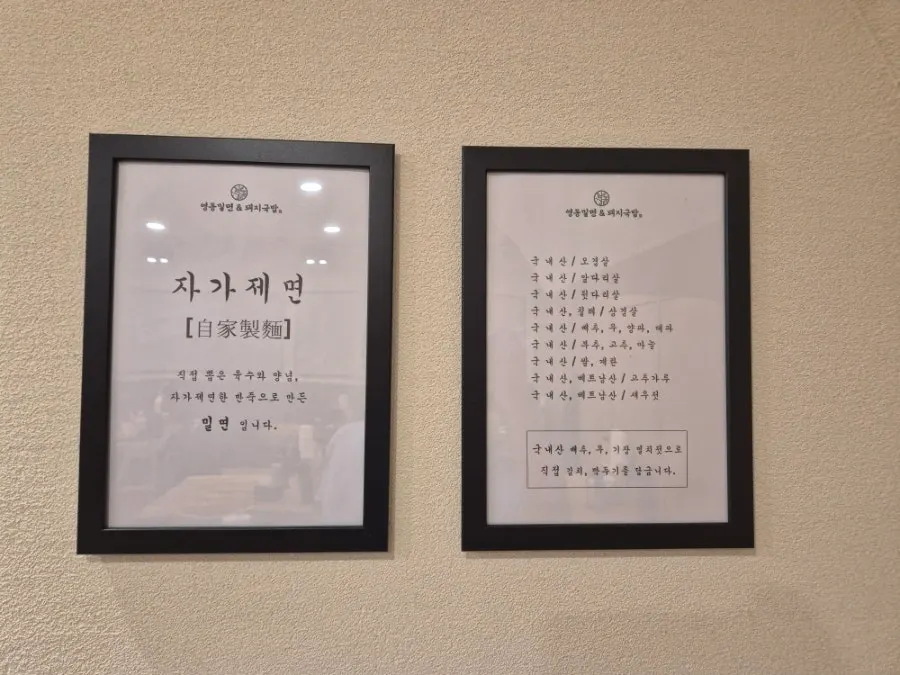 영동밀면 & 돼지국밥
자가제면
[自家製麵]
직접 뽑은 육수와 양념,
자가제면한 반죽으로 만든
밀면 입니다.
영동밀면 & 돼지국밥
국내산 / 오겹살
국내산 / 앞다리살
국내산 / 뒷다리살
국내산, 칠레 / 삼겹살
국내산 / 배추, 무, 양파, 대파
국내산 / 부추, 고추, 마늘
국내산 / 쌀, 계란
국내산, 베트남산 / 고추가루
국내산, 베트남산 / 새우젓
국내산 배추, 무, 기장 멸치젓으로
직접 김치, 깍두기를 담급니다.